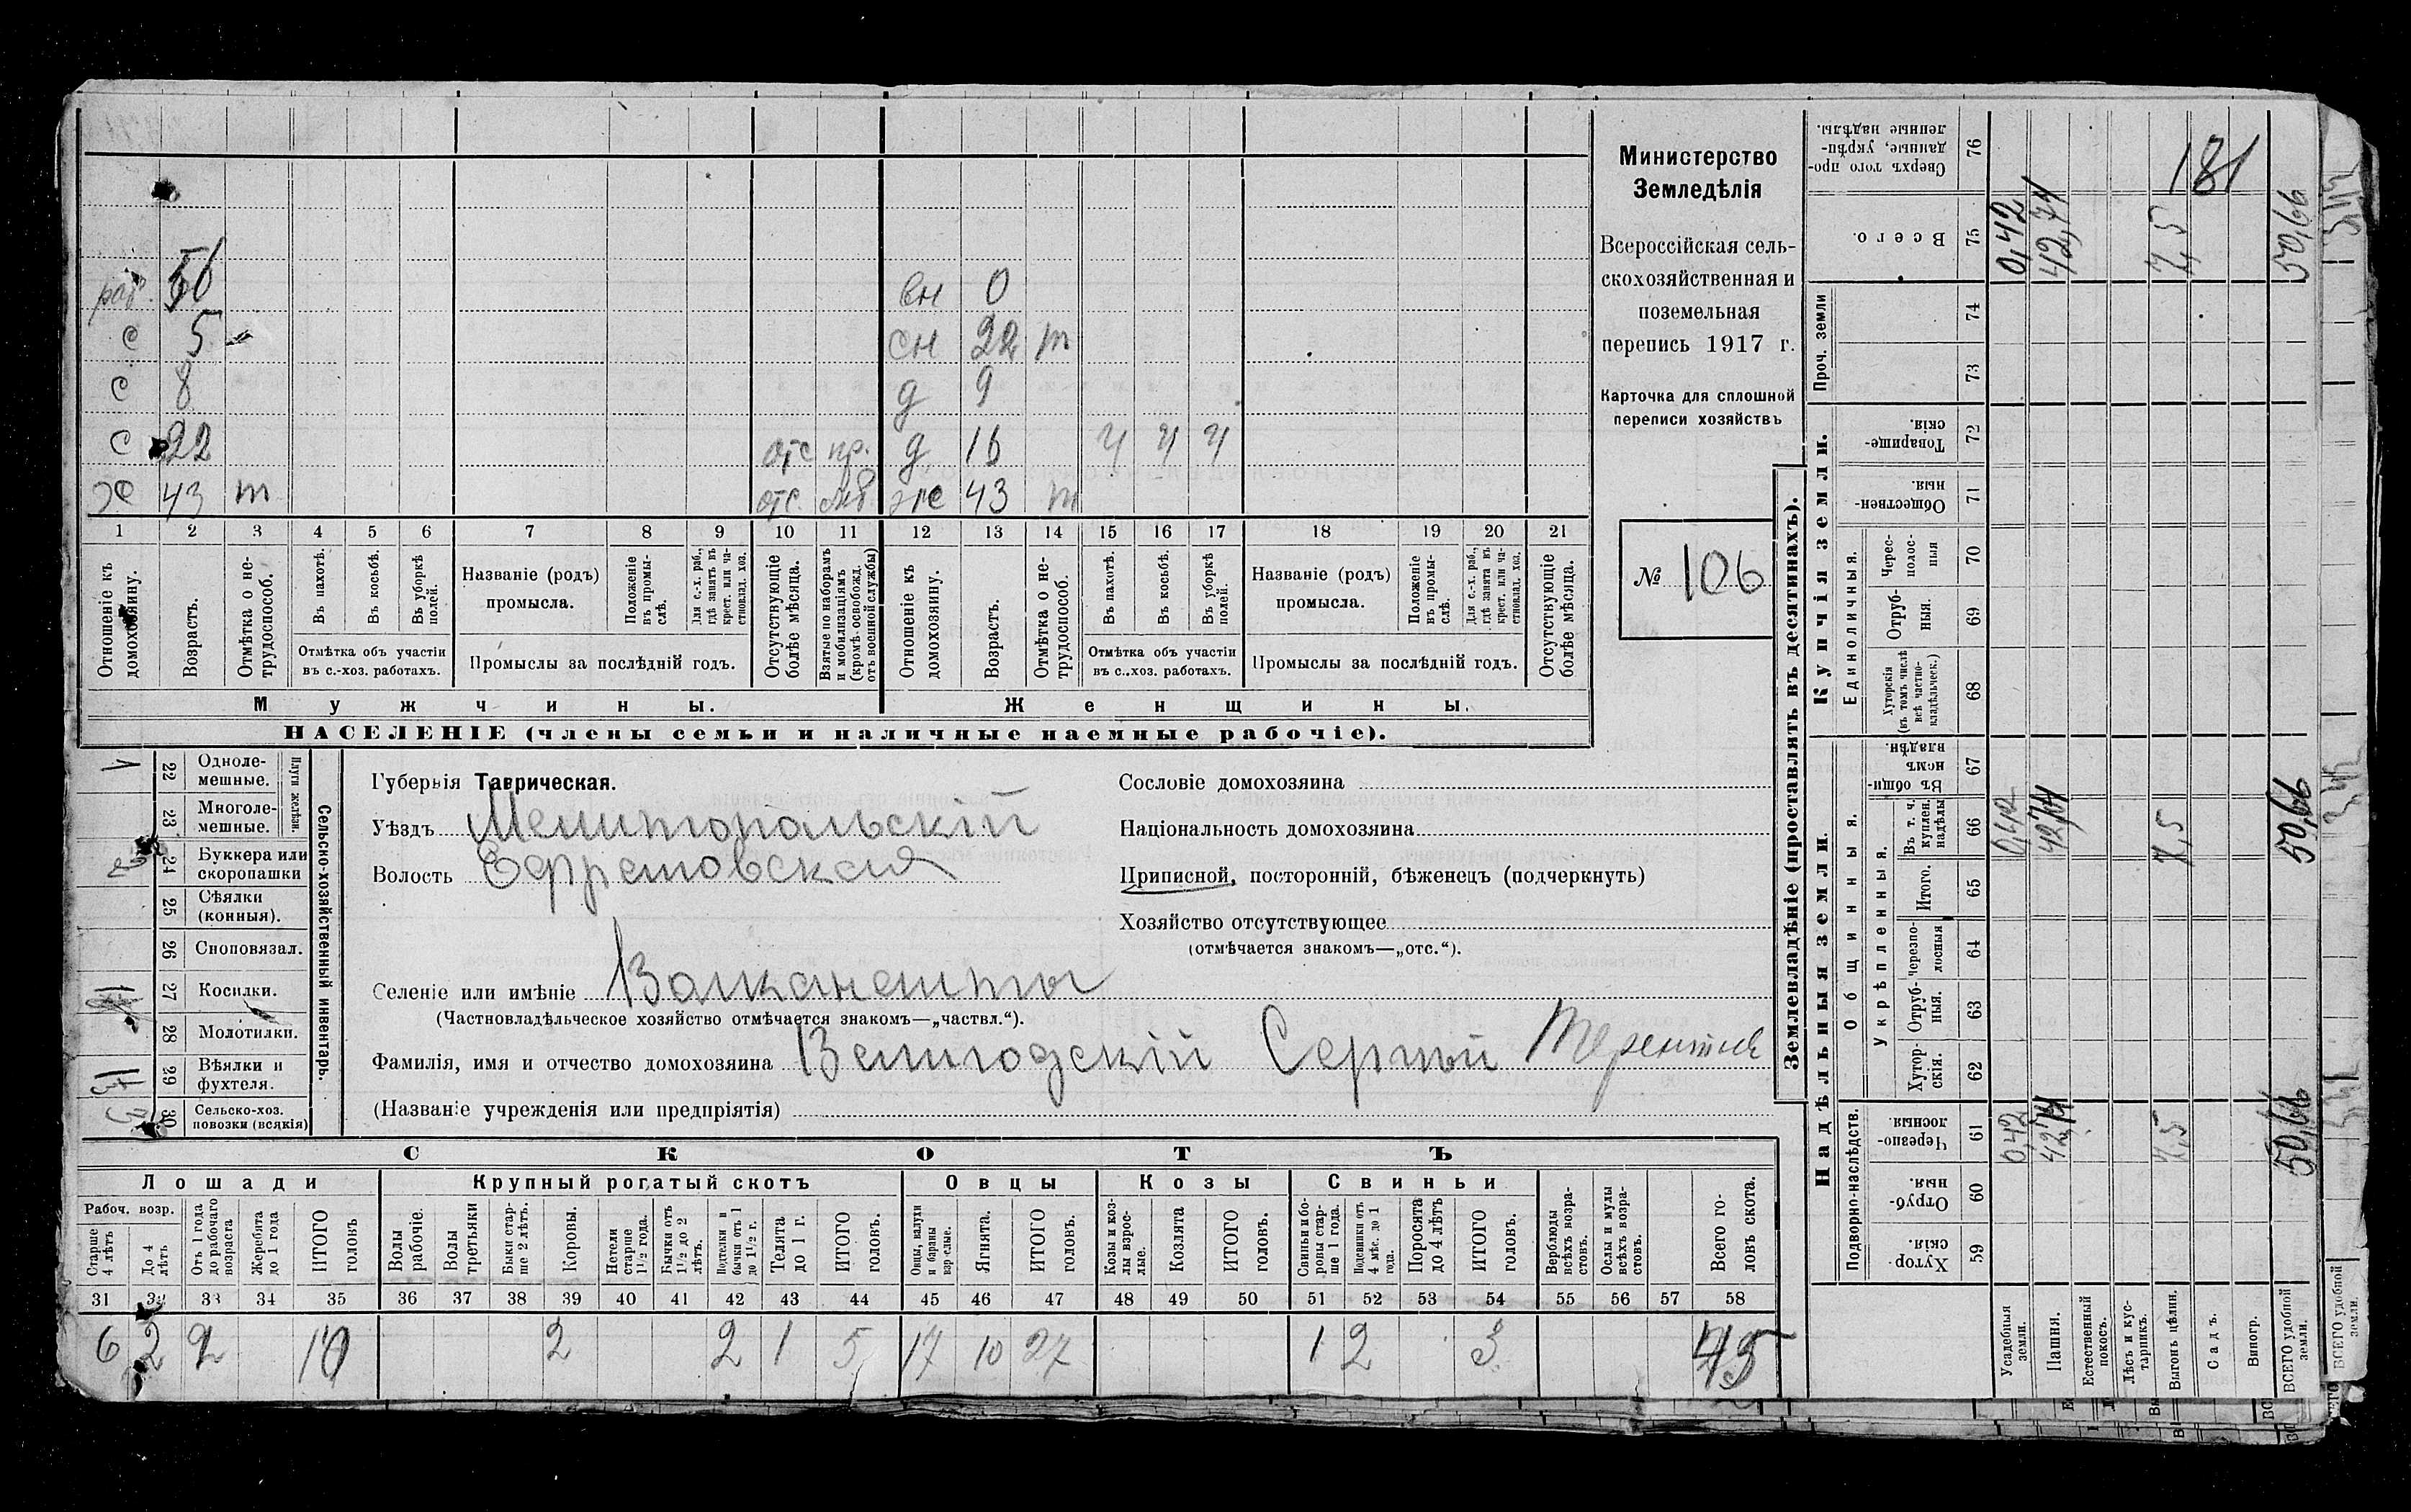 раб. 56 вн 0
с 5 сн 22 т
с 8 д 9
с 22 отс пр. д 16 ч ч ч
х 43 т отс. моб. же 43 т
1 2 3 4 5 6 7 8 9 10 11 12 13 14 15 16 17 18 19 20 21
Отношеніе къ домохозяину.
Возрастъ.
Отмѣтка о не-трудоспособ.
Въ пахотѣ.
Въ косьбѣ.
Въ уборкѣ полей.
Отмѣтка объ участіи
въ с.-хоз. работахъ.
Названіе (родъ)
промысла.
Положеніе въ промы-слѣ.
Для с.-х. раб., гдѣ занятъ въ крест. или ча-стновлад. хоз.
Промыслы за послѣдній годъ.
Отсутствующіе болѣе мѣсяца.
Взятые по наборамъ и мобилизаціямъ (кромѣ освобожд. отъ военной службы)
Отношеніе къ домохозяину.
Возрастъ.
Отмѣтка о не-трудоспособ.
Въ пахотѣ.
Въ косьбѣ.
Въ уборкѣ полей.
Отмѣтка объ участіи
въ с..хоз. работахъ.
Названіе (родъ)
промысла.
Положеніе въ промы-слѣ.
Для с.-х. раб., гдѣ занята въ крест. или ча-стновлад. хоз.
Промыслы за послѣдній годъ.
Отсутствующіе болѣе мѣсяца.
Мужчины. Женщины.
НАСЕЛЕНІЕ (члены семьи и наличные наемные рабочіе).
Министерство
Земледѣлія
Всероссійская сель-
скохозяйственная и
поземельная
перепись 1917 г.
Карточка для сплошной
переписи хозяйствъ
№ 106
Сельско-хозяйственный инвентарь.
Плуги желѣзн.
22 Одноле-мешные.
23 Многоле-мешные.
24 Буккера или скоропашки
25 Сѣялки (конныя).
26 Сноповязал.
27 Косилки.
28 Молотилки.
29 Вѣялки и фухтеля.
30 Сельско-хоз. повозки (всякія)
Губернія Таврическая.
Уѣздъ Мелитопольскій
Волость Ефремовская
Селеніе или имѣніе Волканешты
(Частновладѣльческое хозяйство отмѣчается знакомъ—„частвл.“).
Фамилія, имя и отчество домохозяина Велигодскій Сергѣй Терентіев
(Названіе учрежденія или предпріятія)
Сословіе домохозяина
Національность домохозяина
Приписной, посторонній, бѣженецъ (подчеркнуть)
Хозяйство отсутствующее
(отмѣчается знакомъ—„отс.“).
СКОТЪ
Лошади Крупный рогатый скотъ Овцы Козы Свиньи
Рабоч. возр.
Старше 4 лѣтъ
До 4 лѣтъ
Отъ 1 года до рабочаго возраста
Жеребята до 1 года
ИТОГО головъ
Волы рабочіе.
Волы третьяки
Быки стар-ше 2 лѣтъ.
Коровы.
Нетели старше 1½ года.
Бычки отъ 1½ до 2 лѣтъ.
Подтелки и бычки отъ 1 до 1½ г.
Телята до 1 г.
ИТОГО головъ.
Овцы, валухи и бараны взрослые.
Ягнята.
ИТОГО головъ.
Козы и коз-лы взрос-лые.
Козлята
ИТОГО головъ.
Свиньи и бо-ровы стар-ше 1 года.
Подсвинки отъ 4 мѣс. до 1 года.
Поросята до 4 лѣтъ
ИТОГО головъ.
Верблюды всѣхъ возра-стовъ.
Ослы и мулы всѣхъ возра-стовъ.
Всего го-ловъ скота.
31 32 33 34 35 36 37 38 39 40 41 42 43 44 45 46 47 48 49 50 51 52 53 54 55 56 57 58
6 2 2 10 2 2 1 5 17 10 27 1 2 3 45
Землевладѣніе (проставлять въ десятинахъ).
Надѣльныя земли. Купчія земли.
Подворно-наслѣдств.
Общинныя.
Укрѣпленныя.
Единоличныя.
Проч. земли
Хутор-скія. 59
Отруб-ныя. 60
Черезпо-лосныя. 61
Хутор-скія. 62
Отруб-ныя. 63
Черезпо-лосныя 64
Итого. 65
Въ т. ч. куплен. надѣлы 66
Въ общи-номъ владѣн. 67
Хуторскія (въ томъ числѣ всѣ частно-владѣльческ.) 68
Отруб-ныя. 69
Черес-полос-ныя 70
Обществен-ныя. 71
Товарище-скія. 72
73
74
Всего. 75
Сверхъ того про-данные, укрѣп-ленные надѣлы. 76
Усадебныя земли. 0,42 0,42 0,42
Пашня. 42,74 42,74 42,74
Естественный покосъ.
Лѣсъ и кус-тарникъ.
Выгонъ цѣлин. 7,5 7,5 7,5
Садъ.
Виногр.
ВСЕГО удобной земли. 50,66 50,66 50,66
181
ВСЕГО удобной земли.